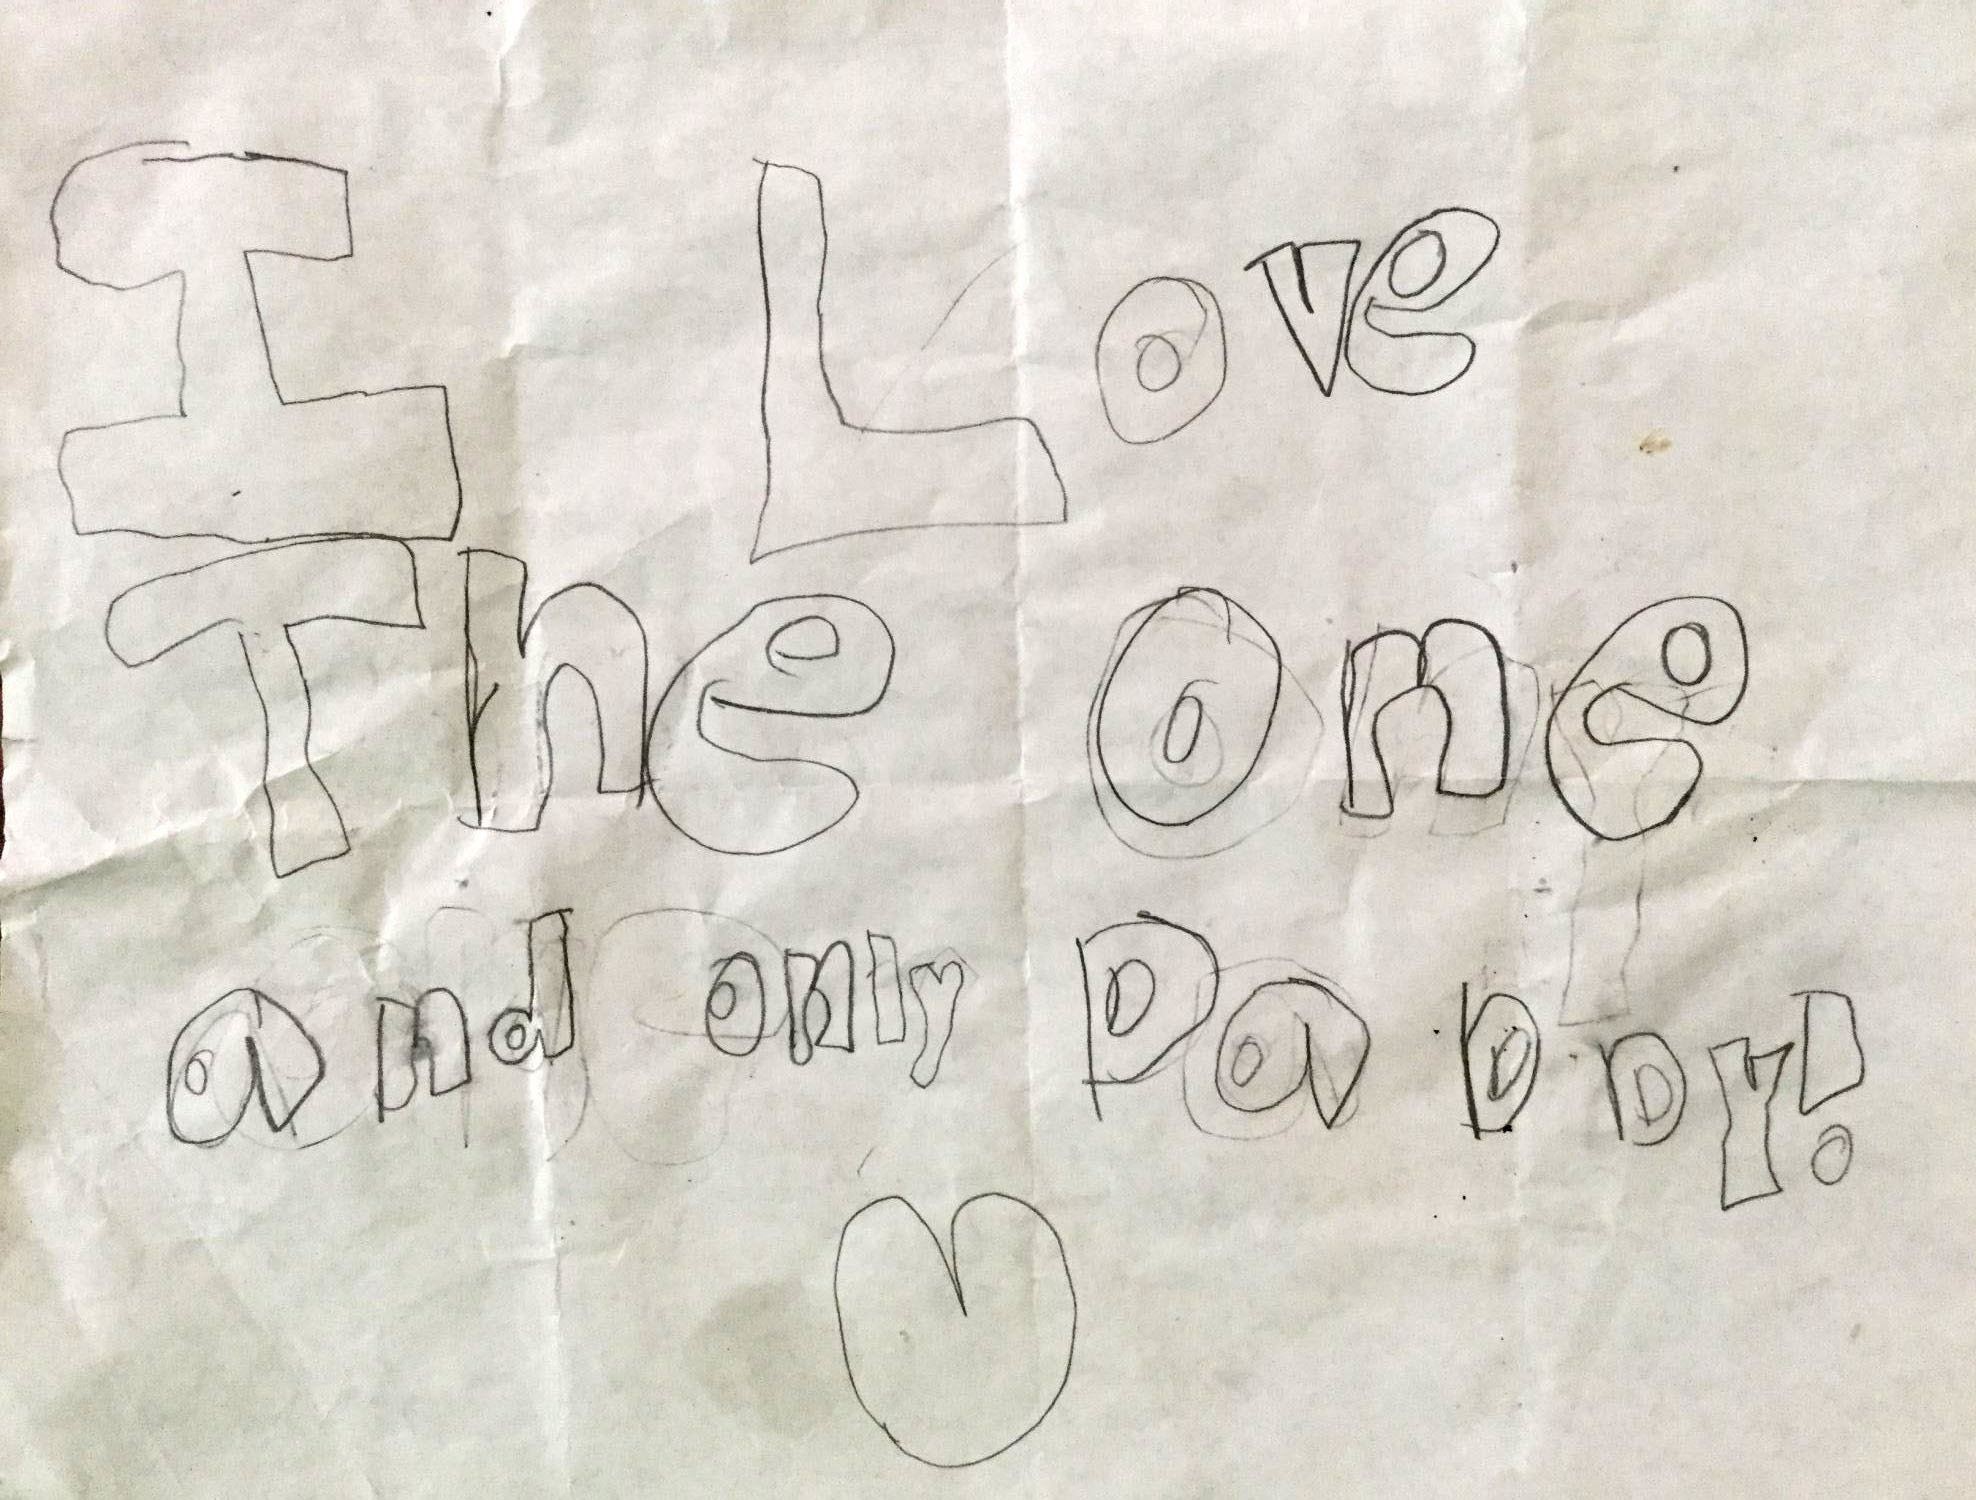 I Love
The One
and only DaDDy!